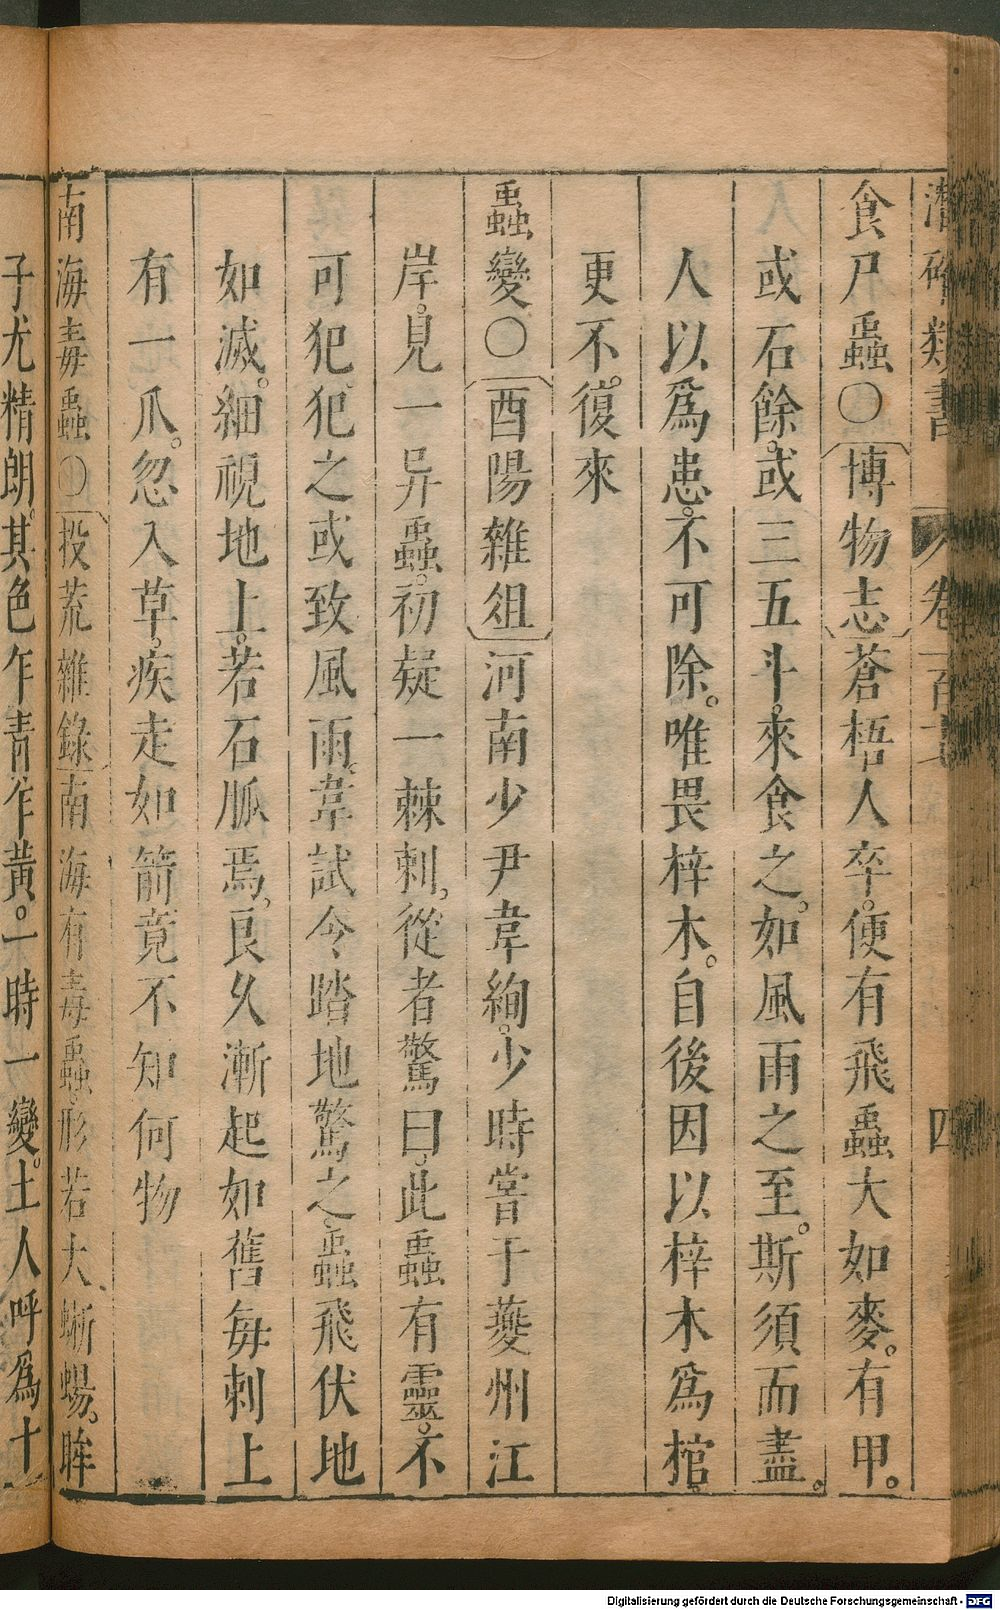 潛確類書 卷一百十七 四
食尸蟲〇博物志蒼梧人卒。便有飛蟲大如麥。有甲。
或石餘。或三五斗。來食之。如風雨之至。斯須而盡。
人以爲患。不可除。唯畏梓木。自後因以梓木爲棺。
更不。復來
蟲變〇酉陽雜俎河南少尹韋絢。少時嘗于夔州江
岸。見一异蟲。初疑一棘刺。從者驚曰。此蟲有靈。不
可犯。犯之或致風雨。韋試令踏地驚之。蟲飛伏地
如滅。細視地上。若石脈焉。良久漸起如舊每刺上
有一爪。忽入草。疾走如箭竟不知何物
南海毒蟲〇投荒雜錄南海有毒蟲。形若大蜥蜴。眸
子尤精朗。其色乍青乍黃。一時一變。土人呼爲十
Digitalisierung gefördert durch die Deutsche Forschungsgemeinschaft - DFG